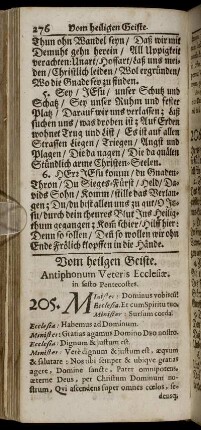 276 Vom heiligen Geiste.
Thun ohn Wandel seyn / Daß wir mit
Demuht gehn herein / All Uppigkeit
verachten: Unart / Hoffart / laß uns mei-
den / Christlich leiden / Wol ergründen /
Wo die Gnade sey zu finden.
5. Sey / JEsu / unser Schutz und
Schatz / Sey unser Ruhm und fester
Platz / Darauf wir uns verlassen: Laß
suchen uns / was droben ist: Auf Erden
wohnet Trug und List / Es ist auf allen
Strassen Liegen / Triegen / Angst und
Plagen / Die da nagen / Die da quälen
Stündlich arme Christen-Seelen.
6. HErr JEsu komm / du Gnaden-
Thron / Du Sieges-Fürst / Held / Da-
vids Sohn / Komm / stille das Verlan-
gen: Du / du bist allen uns zu gut / O JE-
su / durch dein theures Blut Ins Heilig-
thum gegangen: Komm schier / Hilf hier:
Denn so sollen / Denn so wollen wir ohn
Ende Frölich klopffen in die Hände.
Vom heilgen Geiste.
Antiphonum Veteris Ecclesiæ.
in festo Pentecostes.
205. Minister: Dominus vobiscum
Ecclesia. Et cum Spiritu tuo
Minister: Sursum corda.
Ecclesia: Habemus ad Dominum.
Minister: Gratias agamus Domino Deo nostro.
Ecclesia: Dignum & justum est.
Minister: Verè dignum & justum est, æquum
& salutare: Nos tibi semper & ubique gratias
agere, Domine sancte, Pater omnipotens,
æterne Deus, per Christum Dominum no-
strum, Qui ascendens super omnes cœlos, se-
densq;